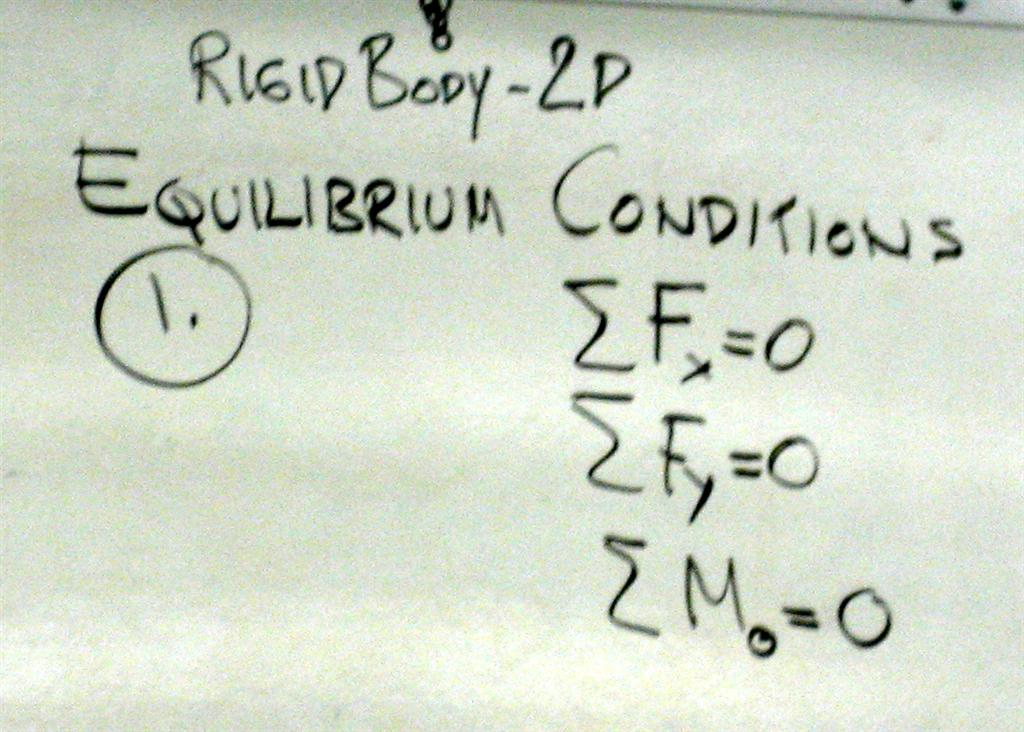 RIGID BODY - 2D
EQUILIBRIUM CONDITIONS
1.
∑ Fx = 0
∑ Fy = 0
∑ Mo = 0